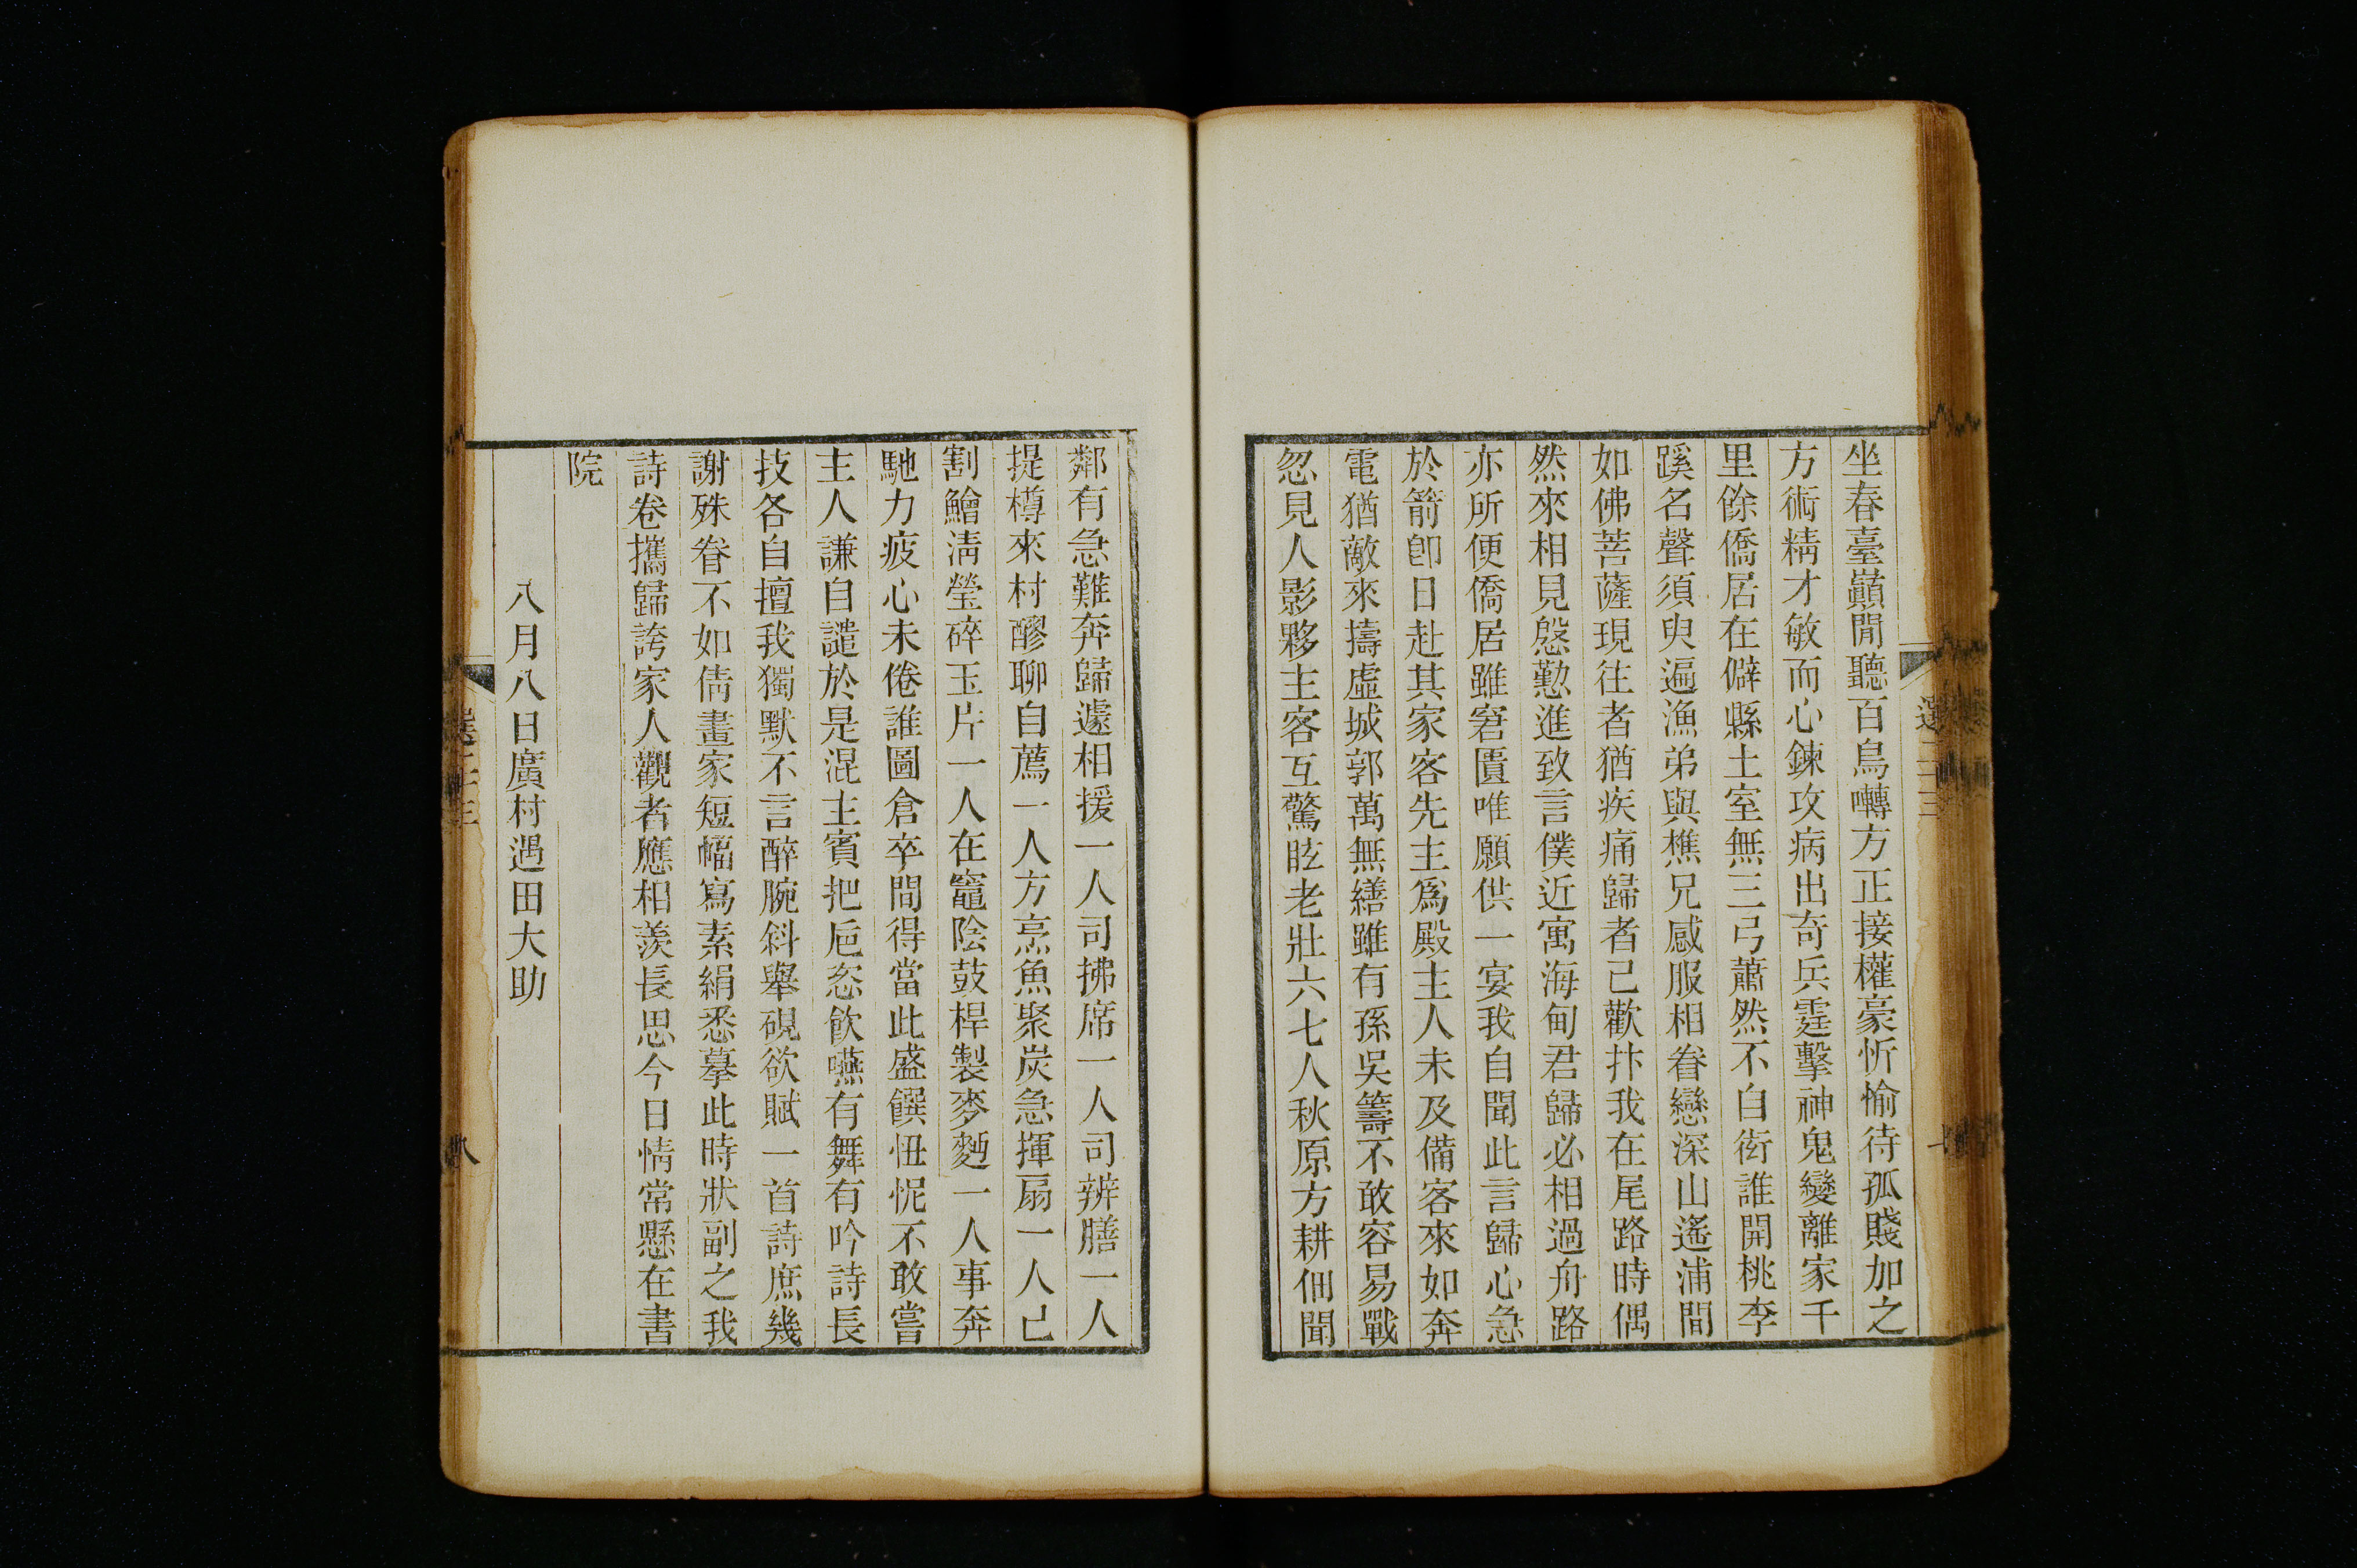 坐春臺巔閒聽百鳥囀方正接權豪忻愉待孤賤加之
方術精才敏而心鍊攻病出奇兵霆擊神鬼變離家千
里餘僑居在僻縣土室無三弓蕭然不自衒誰開桃李
蹊名聲須臾遍漁弟與樵兄感服相眷戀深山遙浦間
如佛菩薩現往者猶疾痛歸者已歡抃我在尾路時偶
然來相見慇懃進致言僕近寓海甸君歸必相過舟路
亦所便僑居雖窘匱唯願供一宴我自聞此言歸心急
於箭卽日赴其家客先主爲殿主人未及備客來如奔
電猶敵來擣虛城郭萬無繕雖有孫吳籌不敢容易戰
忽見人影夥主客互驚眩老壯六七人秋原方耕佃聞
鄰有急難奔歸遽相援一人司拂席一人司辨膳一人
提樽來村醪聊自薦一人方烹魚聚炭急揮扇一人已
割鱠淸瑩碎玉片一人在竈陰鼓桿製麥麪一人事奔
馳力疲心未倦誰圖倉卒間得當此盛饌忸怩不敢嘗
主人謙自譴於是混主賓把巵恣飮嚥有舞有吟詩長
技各自擅我獨默不言醉腕斜舉硯欲賦一首詩庶幾
謝殊眷不如倩畫家短幅寫素絹悉摹此時狀副之我
詩卷攜歸誇家人觀者應相羨長思今日情常懸在書
院
八月八日廣村遇田大助
選二十三
八